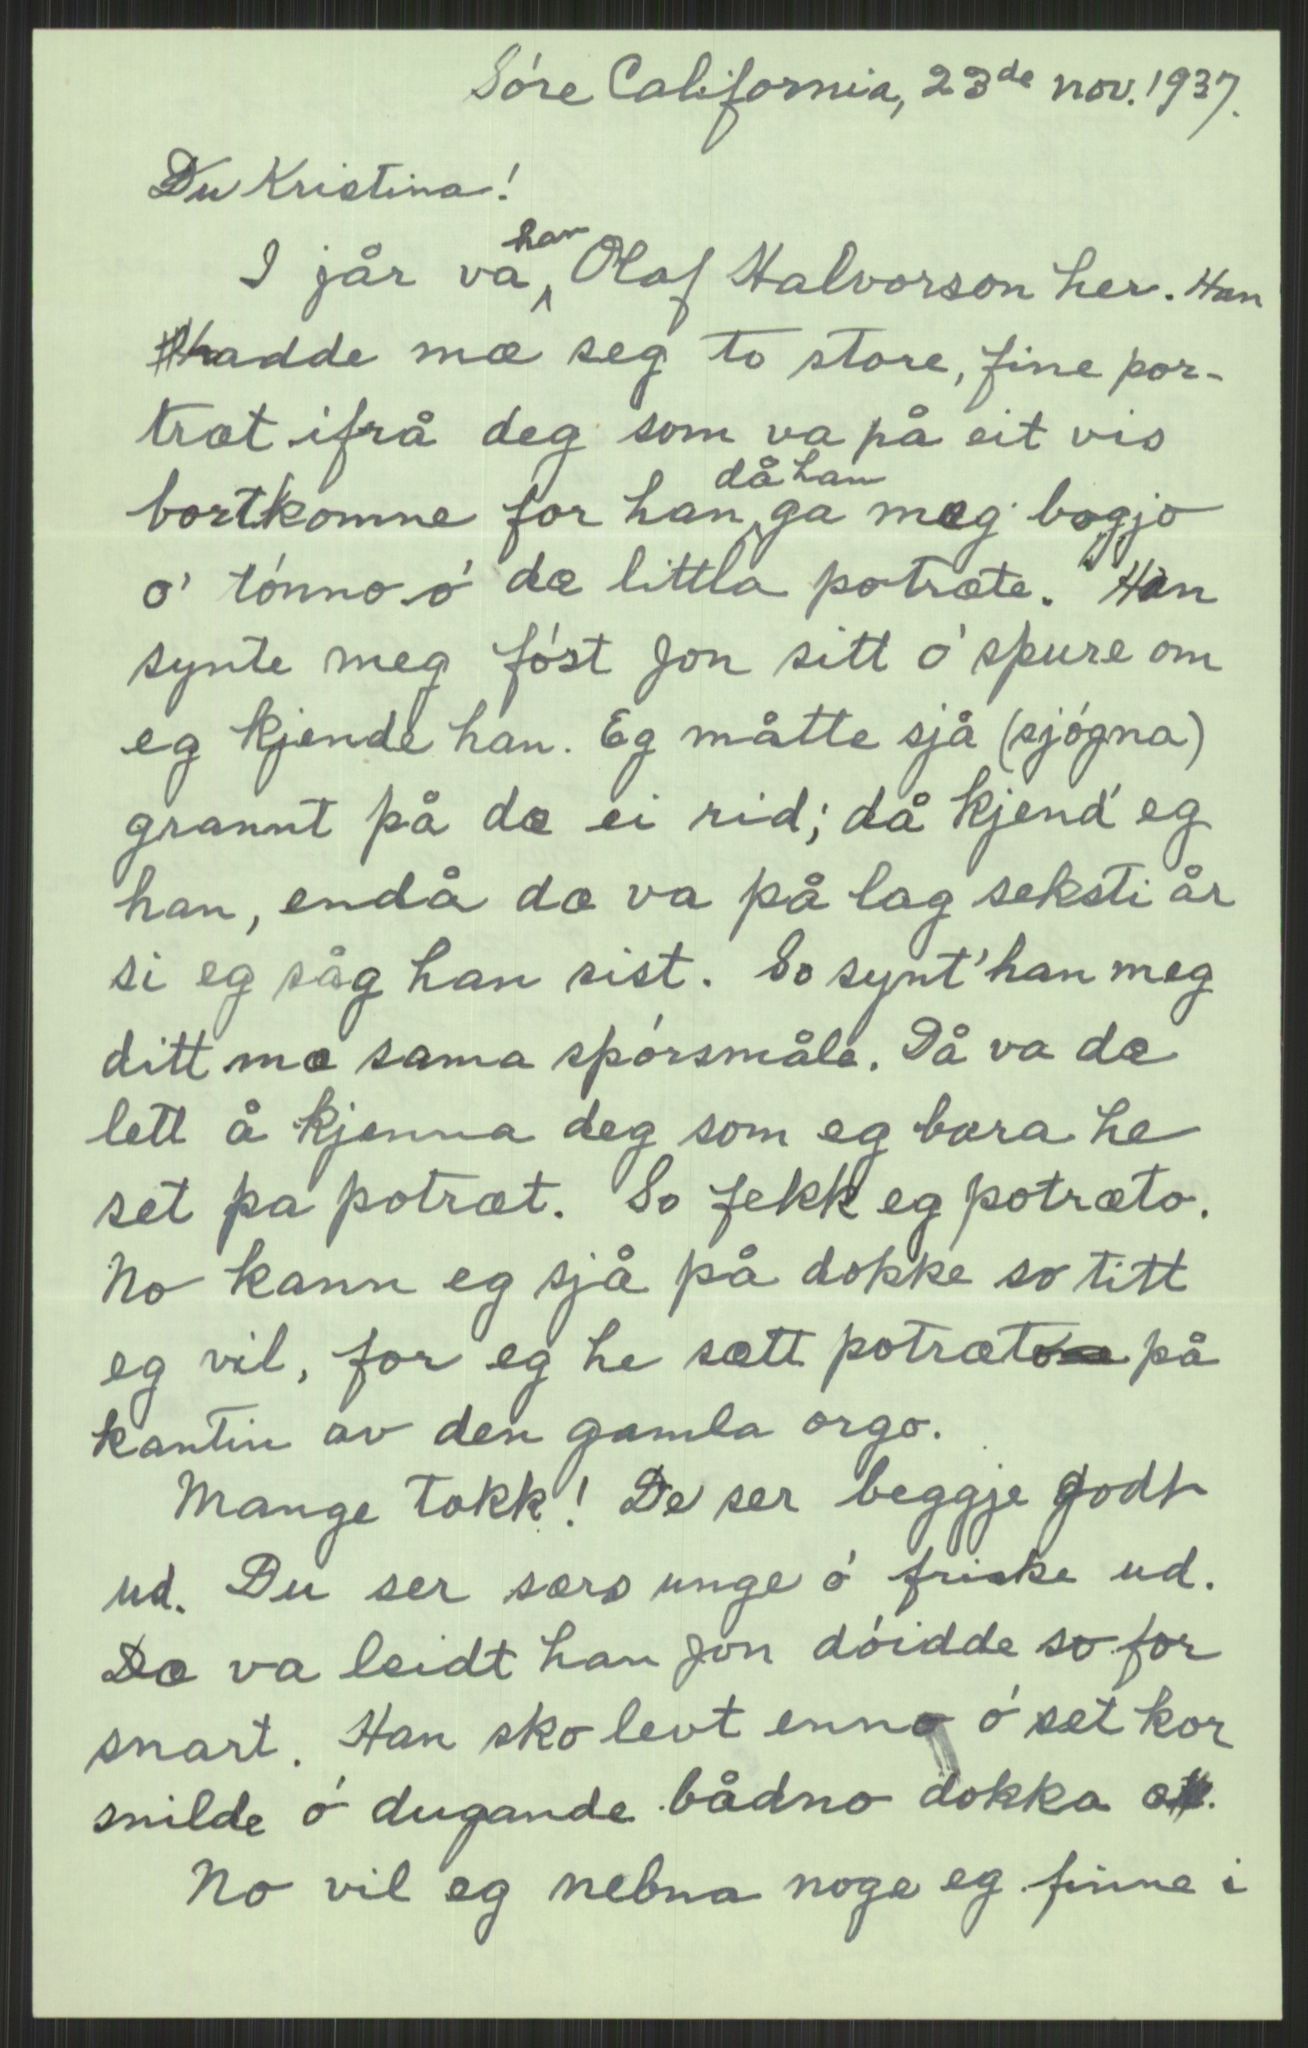 Sóre California, 23de nov. 1937.
Du Kristina!
I jår va han Olaf Halvorson her. Han
hadde mæ seg to store, fine por-
træt ifrå deg som va på eit vis
bortkomne for han då han ga meg bogjo
o' tónno ó dæ littla potræte. Han
synte meg fóst Jon sitt ó spure om
eg kjende han. Eg måtte sjå (sjógna)
grannt på dæ ei rid; då kjend' eg
han, endå dæ va på lag seksti år
si eg såg han sist. So synt' han meg
ditt mæ sama spórsmåle. Då va dæ
lett å kjenna deg som eg bara he
set pa potræt. So fekk eg potræto.
No kann eg sjå på dokke so titt
eg vil, for eg he sætt potræto på
kantin av den gamla orgo.
Mange takk! De ser beggje godt
ud. Du ser særs unge ó friske ud.
Dæ va leidt han Jon dóidde so for
snart. Han sko levt enno ó set kor
snilde ó dugande bådno dokka æ.
No vil eg nebna noge eg finne i